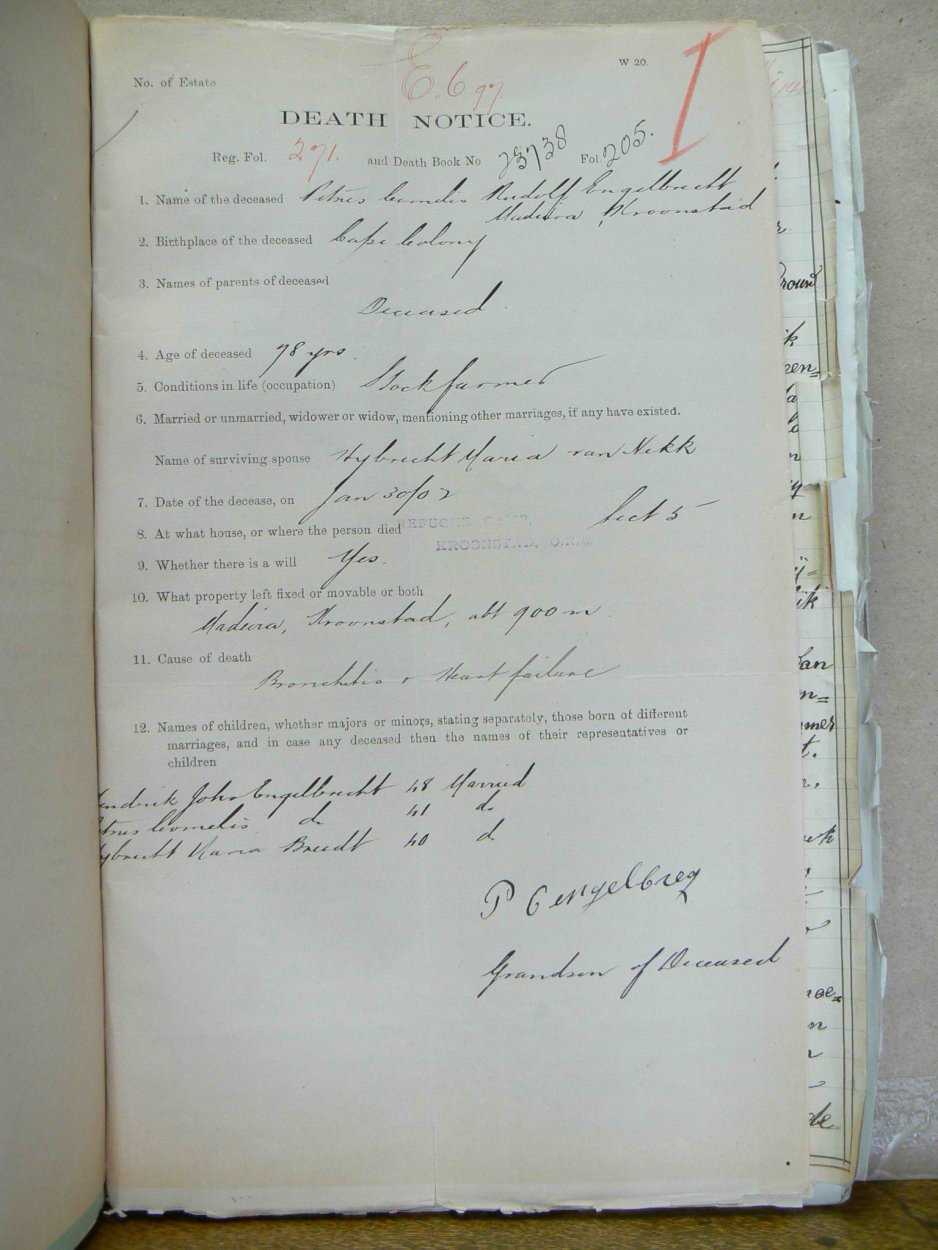 W 20.
No. of Estate E. 697 I
DEATH NOTICE.
Reg. Fol. 271. and Death Book No 23738 Fol. 205.
1. Name of the deceased Petrus Cornelis Rudolf Engelbrecht
Madeira, Kroonstad
2. Birthplace of the deceased Cape Colony
3. Names of parents of deceased
Deceased.
4. Age of deceased 78 yrs.
5. Conditions in life (occupation) Stock farmer
6. Married or unmarried, widower or widow, mentioning other marriages, if any have existed.
Name of surviving spouse Hybrecht Maria van Nekk
7. Date of the decease, on Jan 30/02
8. At what house, or where the person died REFUGEE CAMP Sect 5
KROONSTAD, O.R.C.
9. Whether there is a will Yes.
10. What property left fixed or movable or both
Madeira, Kroonstad, abt 900 m
11. Cause of death
Bronchitis & Heart failure
12. Names of children, whether majors or minors, stating separately, those born of different
marriages, and in case any deceased then the names of their representatives or
children
endrik John Engelbrecht 48 Married
trus Cornelis do 41 do
ybrecht Maria Breedt 40 do
P Cengelbreg
Grandson of Deceased